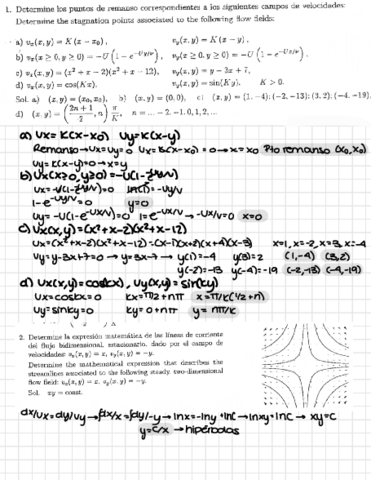 1. Determine los puntos de remanso correspondientes a los siguientes campos de velocidades:
Determine the stagnation points associated to the following flow fields:
a) vₓ(x, y) = K(x − x₀), v_y(x, y) = K(x − y).
b) vₓ(x ≥ 0, y ≥ 0) = −U(1 − e^{−Uy/ν}), v_y(x ≥ 0, y ≥ 0) = −U(1 − e^{−Ux/ν}).
c) vₓ(x, y) = (x² + x − 2)(x² + x − 12), v_y(x, y) = y − 3x + 7,
d) vₓ(x, y) = cos(Kx), v_y(x, y) = sin(Ky), K > 0.
Sol. a) (x, y) = (x₀, x₀), b) (x, y) = (0, 0), c) (x, y) = (1, −4); (−2, −13); (3, 2); (−4, −19).
d) (x, y) = ((2n + 1)/2, n) π/K, n = ... − 2, −1, 0, 1, 2, ...
a) Ux = K(x-x₀) Uy = K(x-y)
Remanso → Ux=Uy=0 Ux = K(x-x₀)=0 → x=x₀ Pto remanso (x₀, x₀)
Uy = K(x-y)=0 → x=y
b) Ux(x≥0, y≥0) = -U(1-
Ux = -U(1- )=0 ln(1) = -Uy/ν
1-e^{-Uy/ν}=0 y=0
Uy = -U(1-e^{-Ux/ν})=0 1=e^{-Ux/ν} → -Ux/ν=0 x=0
c) Ux(x,y) = (x²+x-2)(x²+x-12)
Ux = (x²+x-2)(x²+x-12) = (x-1)(x+2)(x+4)(x-3) x=1, x=-2, x=3, x=-4
Uy = y-3x+7=0 → y=3x-7 → y(1)=-4 y(3)=2 (1,-4) (3,2)
y(-2)=-13 y(-4)=-19 (-2,-13) (-4,-19)
d) Ux(x,y) = cos(kx), Uy(x,y) = sin(ky)
Ux = coskx = 0 kx = π/2 + nπ x = π/k(1/2+n)
Uy = sinky = 0 ky = 0+nπ y = nπ/k
2. Determine la expresión matemática de las líneas de corriente
del flujo bidimensional, estacionario, dado por el campo de
velocidades: vₓ(x, y) = x, v_y(x, y) = −y.
Determine the mathematical expression that describes the
streamlines associated to the following steady, two-dimensional
flow field: vₓ(x, y) = x, v_y(x, y) = −y.
Sol. xy = const.
dx/Ux = dy/Uy → ∫dx/x = ∫dy/-y → lnx = -lny + lnC → lnxy = lnC → xy=C
y=C/x → hipérbolas